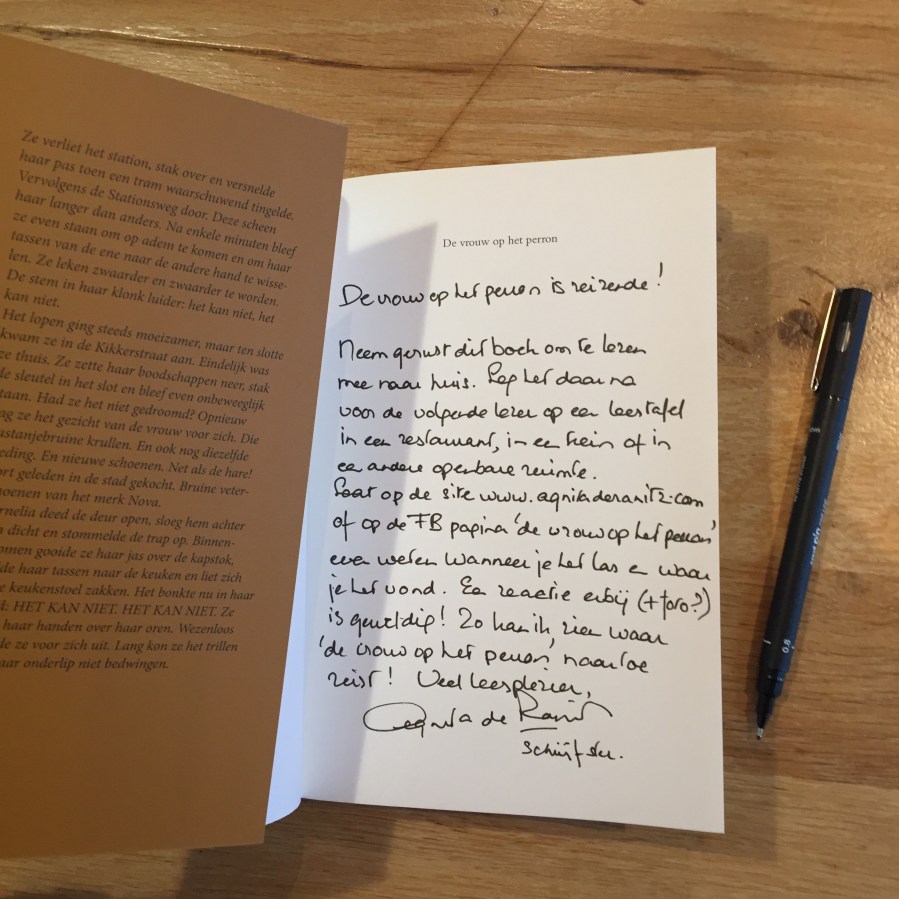 Ze verliet het station, stak over en versnelde
haar pas toen een tram waarschuwend tingelde.
Vervolgens de Stationsweg door. Deze scheen
haar langer dan anders. Na enkele minuten bleef
ze even staan om op adem te komen en om haar
tassen van de ene naar de andere hand te wisse-
len. Ze leken zwaarder en zwaarder te worden.
De stem in haar klonk luider: het kan niet, het
kan niet.
Het lopen ging steeds moeizamer, maar ten slotte
kwam ze in de Kikkerstraat aan. Eindelijk was
ze thuis. Ze zette haar boodschappen neer, stak
de sleutel in het slot en bleef even onbeweeglijk
taan. Had ze het niet gedroomd? Opnieuw
ag ze het gezicht van de vrouw voor zich. Die
astanjebruine krullen. En ook nog diezelfde
eding. En nieuwe schoenen. Net als de hare!
ort geleden in de stad gekocht. Bruine veter-
hoenen van het merk Nova.
rnelia deed de deur open, sloeg hem achter
h dicht en stommelde de trap op. Binnen-
omen gooide ze haar jas over de kapstok,
lde haar tassen naar de keuken en liet zich
e keukenstoel zakken. Het bonkte nu in haar
d: HET KAN NIET. HET KAN NIET. Ze
haar handen over haar oren. Wezenloos
de ze voor zich uit. Lang kon ze het trillen
aar onderlip niet bedwingen.
De vrouw op het perron
De vrouw op het perron is reizende!
Neem gerust dit boek om te lezen
mee naar huis. Leg het daarna
voor de volgende lezer op een leestafel
in een restaurant, in een trein of in
een andere openbare ruimte.
Laat op de site www.agnitaderanitz.com
of op de FB pagina 'de vrouw op het perron'
even weten wanneer je het las en waar
je het vond. Een reactie erbij (+ foto?)
is geweldig! Zo kan ik zien waar
'de vrouw op het perron' naar toe
reist! Veel leesplezier,
Agnita de Ranitz
schrijfster.
0,8